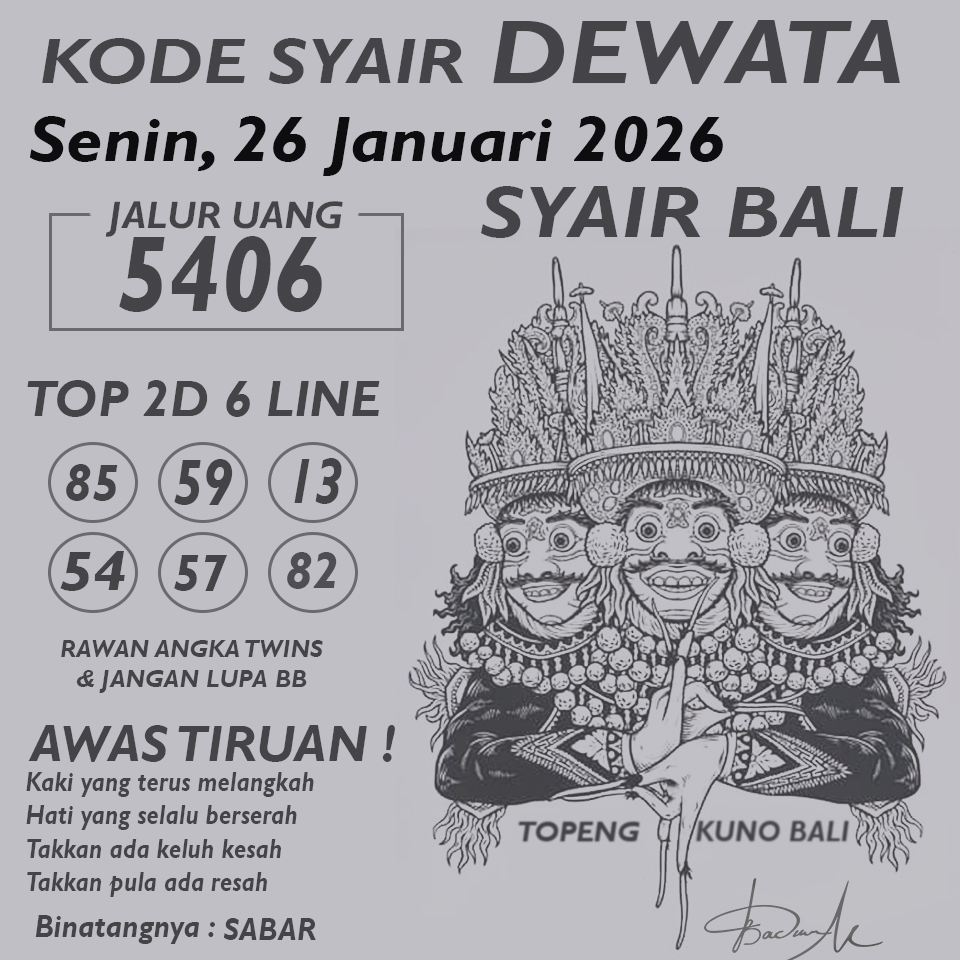 KODE SYAIR DEWATA
Senin, 26 Januari 2026
SYAIR BALI
JALUR UANG
5406
TOP 2D 6 LINE
85 59 13
54 57 82
RAWAN ANGKA TWINS
& JANGAN LUPA BB
AWAS TIRUAN !
Kaki yang terus melangkah
Hati yang selalu berserah
Takkan ada keluh kesah
Takkan pula ada resah
Binatangnya : SABAR
TOPENG KUNO BALI